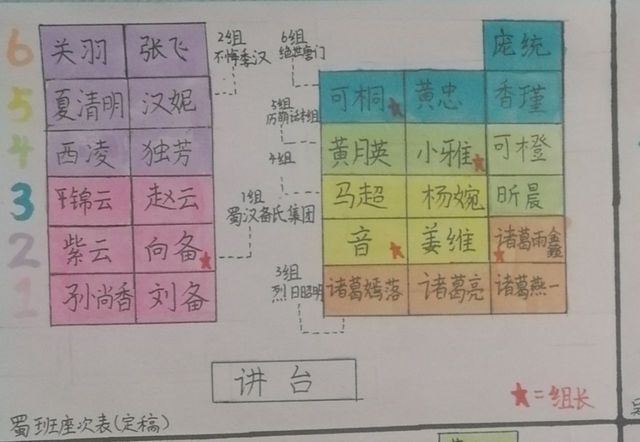 6 关羽 张飞 2组 不悔季汉 6组 绝世唐门 庞统
5 夏清明 汉妮 可桐 黄忠 香瑾
4 西凌 独芳 5组 历朝话本组 黄月英 小雅 可橙
4组
3 锦云 赵云 1组 蜀汉备氏集团 马超 杨婉 昕晨
2 紫云 向备 音 姜维 诸葛雨鑫
1 孙尚香 刘备 3组 烈日昭明 诸葛嫣落 诸葛亮 诸葛燕一
讲台
★=组长
蜀班座次表(定稿)